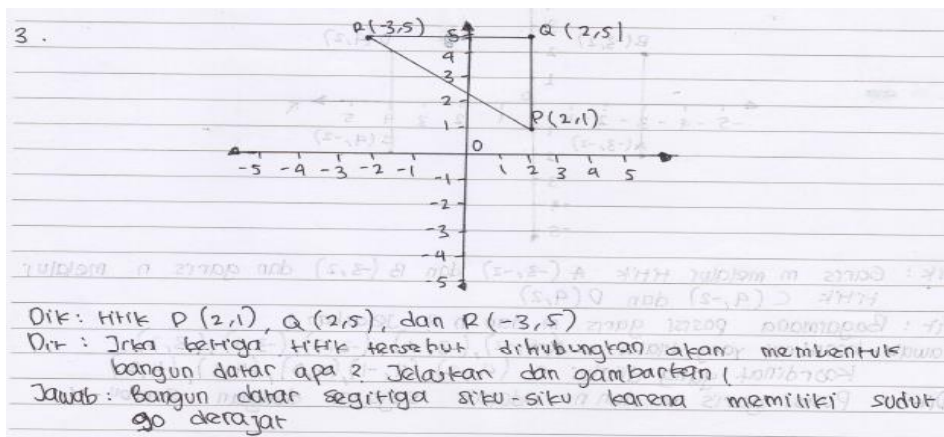 3.
R(-3,5)
5
Q(2,5)
4
3
2
1
P(2,1)
0
-5 -4 -3 -2 -1 1 2 3 4 5
-1
-2
-3
-4
-5
Dik : titik P (2,1), Q (2,5), dan R (-3,5)
Dit : Jika ketiga titik tersebut dihubungkan akan membentuk
bangun datar apa ? Jelaskan dan gambarkan !
Jawab : Bangun datar segitiga siku-siku karena memiliki sudut
90 derajat